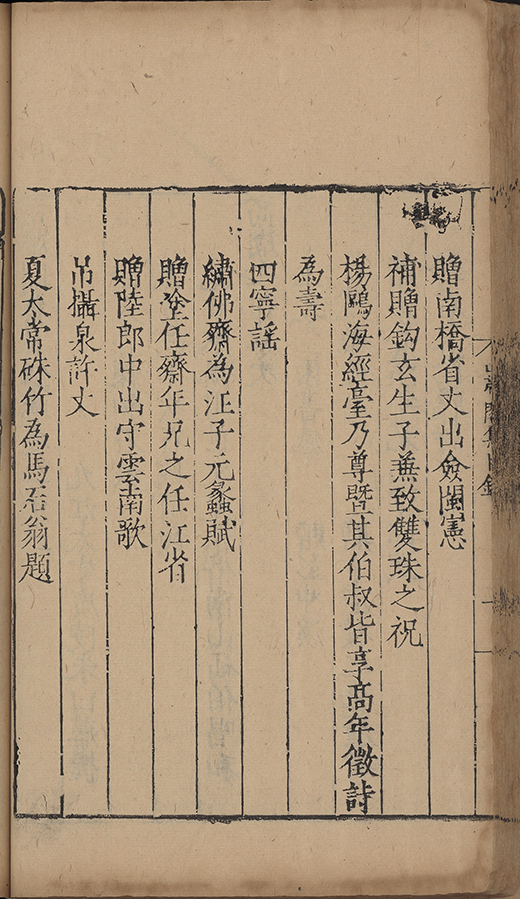 贈南橋省丈出僉閩憲
補贈鈎玄生子兼致雙珠之祝
楊鷗海經臺乃尊暨其伯叔皆享高年徵詩
為壽
四寧謠
繡佛齋為汪子元蠡賦
贈塗任齋年兄之任江省
贈陸郎中出守雲南歌
吊攝泉許丈
夏太常硃竹為馬石翁題